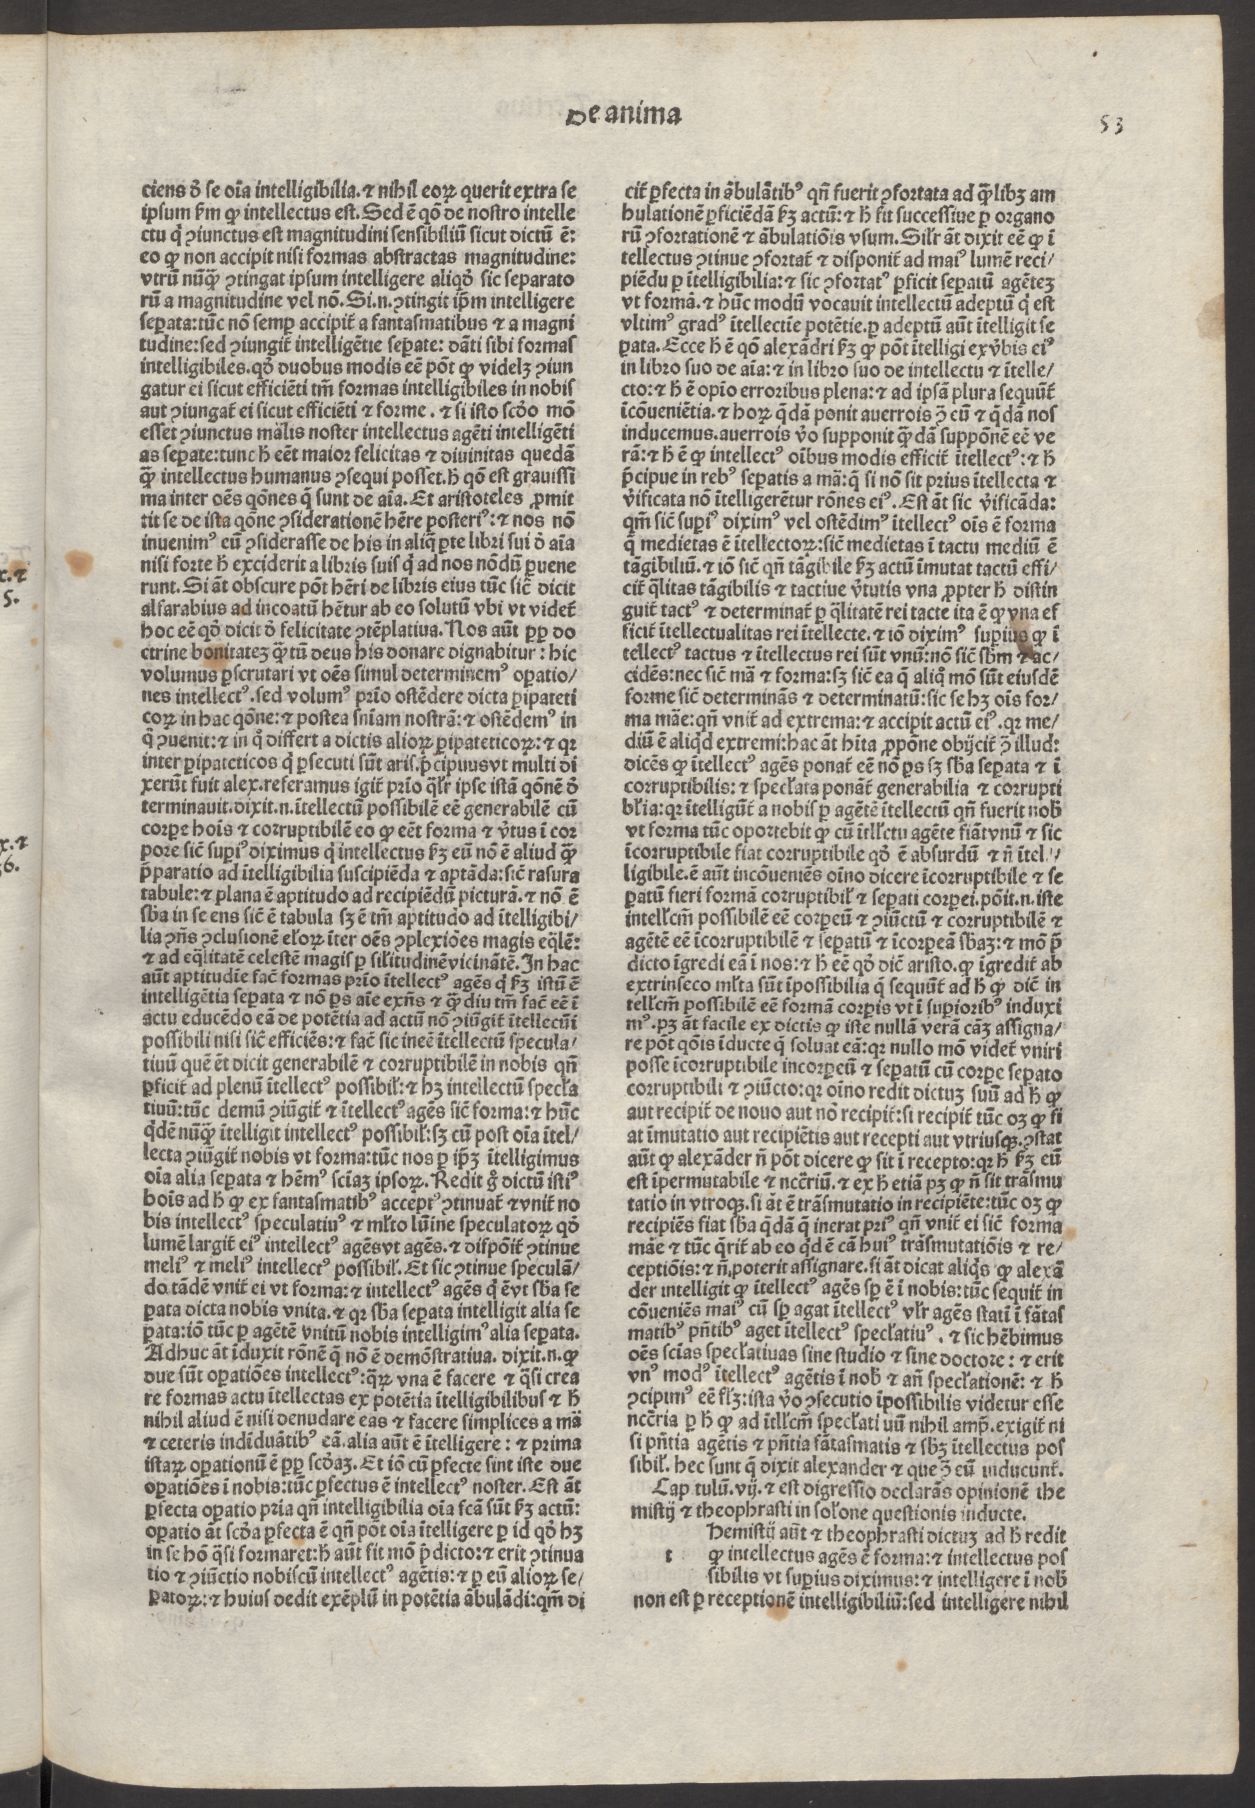 De anima
53
ciens ỏ se oĩa intelligibilia. ⁊ nihil eoꝝ querit extra se
ipsum ẜm ꝙ intellectus est. Sed ẽ qõ de nostro intelle
ctu q̇ ꝯiunctus est magnitudini sensibiliũ sicut dictũ ẽ:
eo ꝙ non accipit nisi formas abstractas magnitudine:
vtrũ nũꝗ̃ ꝯtingat ipsum intelligere aliqd̓ sic separato
rũ a magnitudine vel nõ. Si.n. ꝯtingit ip̃m intelligere
seꝑata: tũc nõ semꝑ accipit̃ a fantasmatibus ⁊ a magni
tudine: sed ꝯiungit̃ intelligẽtie seꝑate: dãti sibi formas
intelligibiles. qd̓ duobus modis eẽ põt ꝙ videlꝫ ꝯiun
gatur ei sicut efficiẽti tm̃ formas intelligibiles in nobis
aut ꝯiungat̃ ei sicut efficiẽti ⁊ forme. ⁊ si isto scd̓o mõ
esset ꝯiunctus mãlis noster intellectus agẽti intelligẽti
as seꝑate: tunc h̃ eẽt maior felicitas ⁊ diuinitas quedã
ꝗ̃ intellectus humanus ꝯsequi posset. h̃ qõ est grauissi
ma inter oẽs qõnes q̃ sunt de aĩa. Et aristoteles ꝓmit
tit se de ista qõne ꝯsiderationẽ hẽre posteriꝰ: ⁊ nos nõ
inuenimꝰ eũ ꝯsiderasse de his in aliq̃ ꝑte libri sui ỏ aĩa
nisi forte h̃ exciderit a libris suis q̇ ad nos nõdũ ꝑuene
runt. Si ãt obscure põt hẽri de libris eius tũc sic̃ dicit
alfarabius ad incoatũ hẽtur ab eo solutũ vbi vt videt̃
hoc eẽ qd̓ dicit ỏ felicitate ꝯtẽplatiua. Nos aũt ꝓp̃ do
ctrine bonitatez ꝗ̃tũ deus his donare dignabitur: hic
volumus ꝑscrutari vt oẽs simul determinemꝰ oꝑatio/
nes intellectꝰ. sed volumꝰ prĩo ostẽdere dicta ꝑipateti
coꝝ in hac qõne: ⁊ postea sñiam nostrã: ⁊ ostẽdemꝰ in
q̊ ꝯuenit: ⁊ in q̊ differt a dictis alioꝝ ꝑipateticoꝝ: ⁊ qꝛ
inter ꝑipateticos q̇ ꝑsecuti sũt aris. p̃cipuus vt multi di
xerũt fuit alex. referamus igit̃ prĩo qlr̃ ipse istã qõnẽ ỏ
terminauit. dixit.n. ĩtellectũ possibilẽ eẽ generabilẽ cũ
corꝑe hoĩs ⁊ corruptibilẽ eo ꝙ eẽt forma ⁊ v̓tus ĩ cor
pore sic̃ supiꝰ diximus q̇ intellectus ẜꝫ eũ nõ ẽ aliud ꝗ̃
p̃paratio ad ĩtelligibilia suscipiẽda ⁊ aptãda: sic̃ rasura
tabule: ⁊ plana ẽ aptitudo ad recipiẽdũ picturã. ⁊ nõ ẽ
sb̓a in se ens sic̃ ẽ tabula sꝫ ẽ tm̃ aptitudo ad ĩtelligibi/
lia ꝯñs ꝯclusionẽ eloꝝ ĩter oẽs ꝯplexiões magis eq̃lẽ:
⁊ ad eq̃litatẽ celestẽ magis ꝑ silitudinẽ vicinãtẽ. In hac
aũt aptitudĩe fac̃ formas prĩo ĩtellectꝰ agẽs q̇ ẜꝫ istũ ẽ
intelligẽtia seꝑata ⁊ nõ ꝑs aĩe exñs ⁊ ꝗ̃ diu tm̃ fac̃ eẽ ĩ
actu educẽdo eã de potẽtia ad actũ nõ ꝯiũgit̃ ĩtellectui
possibili nisi sic̃ efficiẽs: ⁊ fac̃ sic ineẽ ĩtellectũ specula/
tiuũ quẽ ẽt dicit generabilẽ ⁊ corruptibilẽ in nobis qñ
ꝑficit̃ ad plenũ ĩtellectꝰ possibil̃: ⁊ hꝫ intellectũ specl̃a
tiuũ: tũc demũ ꝯiũgit̃ ⁊ ĩtellectꝰ agẽs sic̃ forma: ⁊ hũc
q̇dẽ nũꝗ̃ ĩtelligit intellectꝰ possibil̃: sꝫ cũ post oĩa ĩtel/
lecta ꝯiũgit̃ nobis vt forma: tũc nos ꝑ ip̃ꝫ ĩtelligimus
oĩa alia seꝑata ⁊ hẽmꝰ sciaꝫ ipsoꝝ. Redit g̊ dictũ istiꝰ
hoĩs ad h̃ ꝙ ex fantasmatibꝰ acceptꝰ ꝯtinuat̃ ⁊ vnit̃ no
bis intellectꝰ speculatiuꝰ ⁊ ml̃to lũine speculatoꝝ qd̓
lumẽ largit̃ eiꝰ intellectꝰ agẽs vt agẽs. ⁊ dispõit̃ ꝯtinue
meliꝰ ⁊ meliꝰ intellectꝰ possibil̃. Et sic ꝯtinue speculã/
do tãdẽ vnit̃ ei vt forma: ⁊ intellectꝰ agẽs q̇ ẽ vt sb̓a se
ꝑata dicta nobis vnita. ⁊ qꝛ sb̓a seꝑata intelligit alia se
ꝑata: iõ tũc ꝑ agẽtẽ vnitũ nobis intelligimꝰ alia seꝑata.
Adhuc ãt ĩduxit rõnẽ q̃ nõ ẽ demõstratiua. dixit.n. ꝙ
due sũt oꝑatiões intellectꝰ: qꝝ vna ẽ facere ⁊ q̃si crea
re formas actu ĩtellectas ex potẽtia ĩtelligibilibus ⁊ h̃
nihil aliud ẽ nisi denudare eas ⁊ facere simplices a mã
⁊ ceteris indiuiduãtibꝰ eã. alia aũt ẽ ĩtelligere: ⁊ prima
istaꝝ oꝑationũ ẽ ꝓp̃ scd̓aꝫ. Et iõ cũ ꝑfecte sint iste due
oꝑatiões ĩ nobis: tũc ꝑfectus ẽ intellectꝰ noster. Est ãt
ꝑfecta oꝑatio pria qñ intelligibilia oĩa fcã sũt ẜꝫ actũ:
oꝑatio ãt scd̓a ꝑfecta ẽ qñ põt oĩa ĩtelligere ꝑ id qd̓ hꝫ
in se hõ q̃si formaret: h̃ aũt fit mõ p̃dicto: ⁊ erit ꝯtinua
tio ⁊ ꝯiũctio nobiscũ intellectꝰ agẽtis: ⁊ ꝑ eũ alioꝝ se/
ꝑatoꝝ: ⁊ huius dedit exẽplũ in potẽtia ãbulãdi: qm̃ di
cit̃ ꝑfecta in ãbulãtibꝰ qñ fuerit ꝯfortata ad q̃libꝫ am
bulationẽ ꝑficiẽdã ẜꝫ actũ: ⁊ h̃ fit successiue ꝑ organo
rũ ꝯfortationẽ ⁊ ãbulatiõis vsum. Silr̃ ãt dixit eẽ ꝙ ĩ
tellectus ꝯtinue ꝯfortat̃ ⁊ disponit̃ ad maiꝰ lumẽ reci/
piẽdũ ꝑ ĩtelligibilia: ⁊ sic ꝯfortatꝰ ꝑficit seꝑatũ agẽtez
vt formã. ⁊ hũc modũ vocauit intellectũ adeptũ q̇ est
vltimꝰ gradꝰ ĩtellectiue potẽtie. ꝑ adeptũ aũt ĩtelligit se
ꝑata. Ecce h̃ ẽ qõ alexãdri ẜꝫ ꝙ põt ĩtelligi ex v̓bis eiꝰ
in libro suo de aĩa: ⁊ in libro suo de intellectu ⁊ ĩtelle/
cto: ⁊ h̃ ẽ opĩo erroribus plena: ⁊ ad ipsã plura sequũt̃
ĩcõueniẽtia. ⁊ hoꝝ q̇dã ponit auerrois ꝯ̃ eũ ⁊ q̇dã nos
inducemus. auerrois v̓o supponit ꝗ̃dã suppõnẽ eẽ ve
rã: ⁊ h̃ ẽ ꝙ intellectꝰ oĩbus modis efficit̃ ĩtellectꝰ: ⁊ h̃
p̃cipue in rebꝰ seꝑatis a mã: q̃ si nõ sit prius ĩtellecta ⁊
v̓ificata nõ ĩtelligerẽtur rõnes eiꝰ. Est ãt sic v̓ificãda:
qm̃ sic̃ supiꝰ diximꝰ vel ostẽdimꝰ ĩtellectꝰ oĩs ẽ forma
q̃ medietas ẽ ĩtellectoꝝ: sic̃ medietas ĩ tactu mediũ ẽ
tãgibiliũ. ⁊ iõ sic̃ qñ tãgibile ẜꝫ actũ ĩmutat tactũ effi/
cit̃ q̃litas tãgibilis ⁊ tactiue v̓tutis vna ꝓpter h̃ distin
guit̃ tactꝰ ⁊ determinat̃ ꝑ q̃litatẽ rei tacte ita ẽ ꝙ vna ef
ficit̃ ĩtellectualitas rei ĩtellecte. ⁊ iõ diximꝰ supius ꝙ ĩ
tellectꝰ tactus ⁊ ĩtellectus rei sũt vnũ: nõ sic̃ sb̓m ⁊ ac/
cidẽs: nec sic̃ mã ⁊ forma: sꝫ sic̃ ea q̃ aliq̊ mõ sũt eiusdẽ
forme sic̃ determinãs ⁊ determinatũ: sic se hꝫ oĩs for/
ma mãe: qñ vnit̃ ad extrema: ⁊ accipit actũ eiꝰ. qꝛ me/
diũ ẽ aliq̇d extremi: hac ãt hĩta ꝓpõne obijcit̃ ꝯ̃ illud:
dicẽs ꝙ ĩtellectꝰ agẽs ponat̃ eẽ nõ ꝑs sꝫ sb̓a seꝑata ⁊ ĩ
corruptibilis: ⁊ specl̃ata ponãt̃ generabilia ⁊ corrupti
bl̃ia: qꝛ ĩtelligũt̃ a nobis ꝑ agẽtẽ ĩtellectũ qñ fuerit nob̃
vt forma tũc oportebit ꝙ cũ ĩtll̃ctu agẽte fiãt vnũ ⁊ sic
ĩcorruptibile fiat corruptibile qd̓ ẽ absurdũ ⁊ ñ ĩtel/
ligibile. ẽ aũt incõueniẽs oĩno dicere ĩcorruptibile ⁊ se
ꝑatũ fieri formã corruptibil̃ ⁊ seꝑati corꝑei. põit.n. iste
intell̃cm̃ possibilẽ eẽ corꝑeũ ⁊ ꝯiũctũ ⁊ corruptibilẽ ⁊
agẽtẽ eẽ ĩcorruptibilẽ ⁊ seꝑatũ ⁊ ĩcorꝑeã sb̓aꝫ: ⁊ mõ p̃
dicto ĩgredi eã ĩ nos: ⁊ h̃ eẽ qd̓ dic̃ aristo. ꝙ ĩgredit̃ ab
extrinseco ml̃ta sũt ĩpossibilia q̃ sequũt̃ ad h̃ ꝙ dic̃ in
tell̃cm̃ possibilẽ eẽ formã corꝑis vt ĩ supioribꝰ induxi
mꝰ. pꝫ ãt facile ex dictis ꝙ iste nullã verã cãꝫ assigna/
re põt qõis ĩducte q̃ soluat eã: qꝛ nullo mõ videt̃ vniri
posse ĩcorruptibile incorꝑeũ ⁊ seꝑatũ cũ corꝑe seꝑato
corruptibili ⁊ ꝯiũcto: qꝛ oĩno redit dictuꝫ suũ ad h̃ ꝙ
aut recipit̃ de nouo aut nõ recipit̃: si recipit̃ tũc oꝫ ꝙ fi
at ĩmutatio aut recipiẽtis aut recepti aut vtriusqꝫ. ꝯstat
aũt ꝙ alexãder ñ põt dicere ꝙ sit ĩ recepto: qꝛ h̃ ẜꝫ eũ
est ĩpermutabile ⁊ ncc̃riũ. ⁊ ex h̃ etiã pꝫ ꝙ ñ sit trãsmu
tatio in vtroqꝫ. si ãt ẽ trãsmutatio in recipiẽte: tũc oꝫ ꝙ
recipiẽs fiat sb̓a q̇dã q̃ inerat priꝰ qñ vnit̃ ei sic̃ forma
mãe ⁊ tũc q̃rit̃ ab eo q̇d ẽ cã huiꝰ trãsmutatiõis ⁊ re/
ceptiõis: ⁊ ñ poterit assignare. si ãt dicat aliq̇s ꝙ alexã
der intelligit ꝙ ĩtellectꝰ agẽs sp̃ ẽ ĩ nobis: tũc sequit̃ in
cõueniẽs maiꝰ cũ sp̃ agat ĩtellectꝰ vlr̃ agẽs statĩ ĩ fãtas
matibꝰ pñtibꝰ aget ĩtellectꝰ specl̃atiuꝰ. ⁊ sic hẽbimus
oẽs scĩas specl̃atiuas sine studio ⁊ sine doctore: ⁊ erit
vnꝰ modꝰ ĩtellectꝰ agẽtis ĩ nob̃ ⁊ añ specl̃ationẽ: ⁊ h̃
ꝯcipimꝰ eẽ fl̃ꝫ: ista v̓o ꝯsecutio ĩpossibilis videtur esse
ncc̃ria ꝑ h̃ ꝙ ad ĩtll̃cm̃ specl̃ati uũ nihil amp̃. exigit̃ ni
si pñtia agẽtis ⁊ pñtia fãtasmatis ⁊ sb̓ꝫ ĩtellectus pos
sibil̃. hec sunt q̃ dixit alexander ⁊ que ꝯ̃ eũ inducunt̃.
Cap tulũ. vij. ⁊ est digressio declarãs opinionẽ the
mistij ⁊ theophrasti in solone questionis inducte.
t
hemistij aũt ⁊ theophrasti dictuꝫ ad h̃ redit
ꝙ intellectus agẽs ẽ forma: ⁊ intellectus pos
sibilis vt superius diximus: ⁊ intelligere ĩ nob̃
non est ꝑ receptionẽ intelligibiliũ: sed intelligere nihil